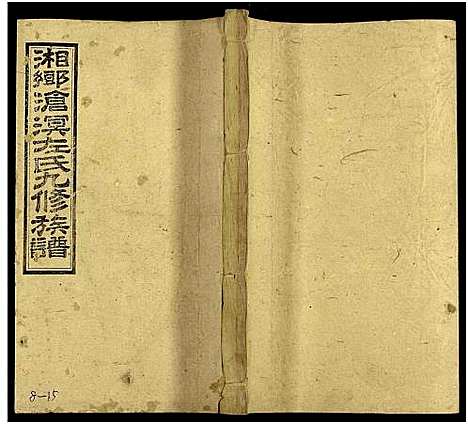 湘鄉滄溟左氏九修族譜
8-15